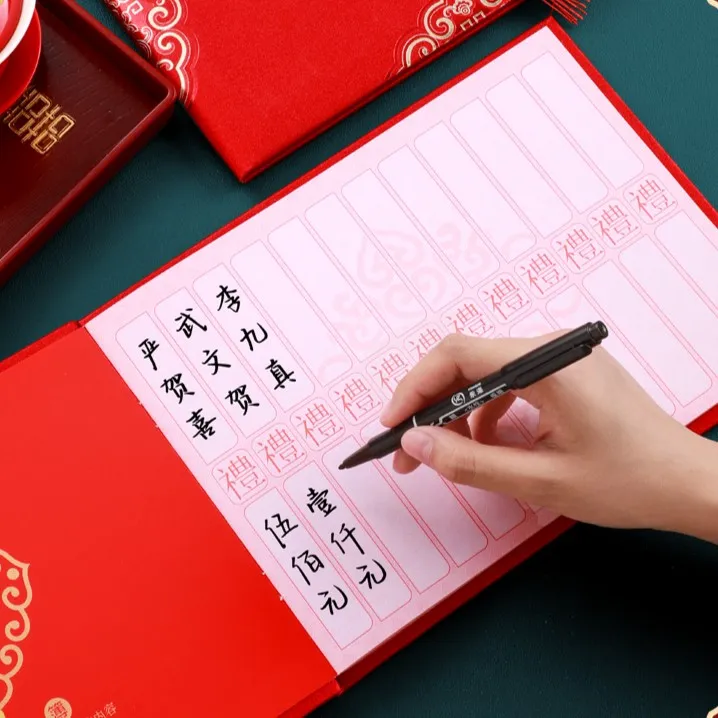 严贺喜
武文贺
李九真
禮禮禮禮禮禮禮禮禮禮禮禮
伍佰元
壹仟元
囍
簿
内容